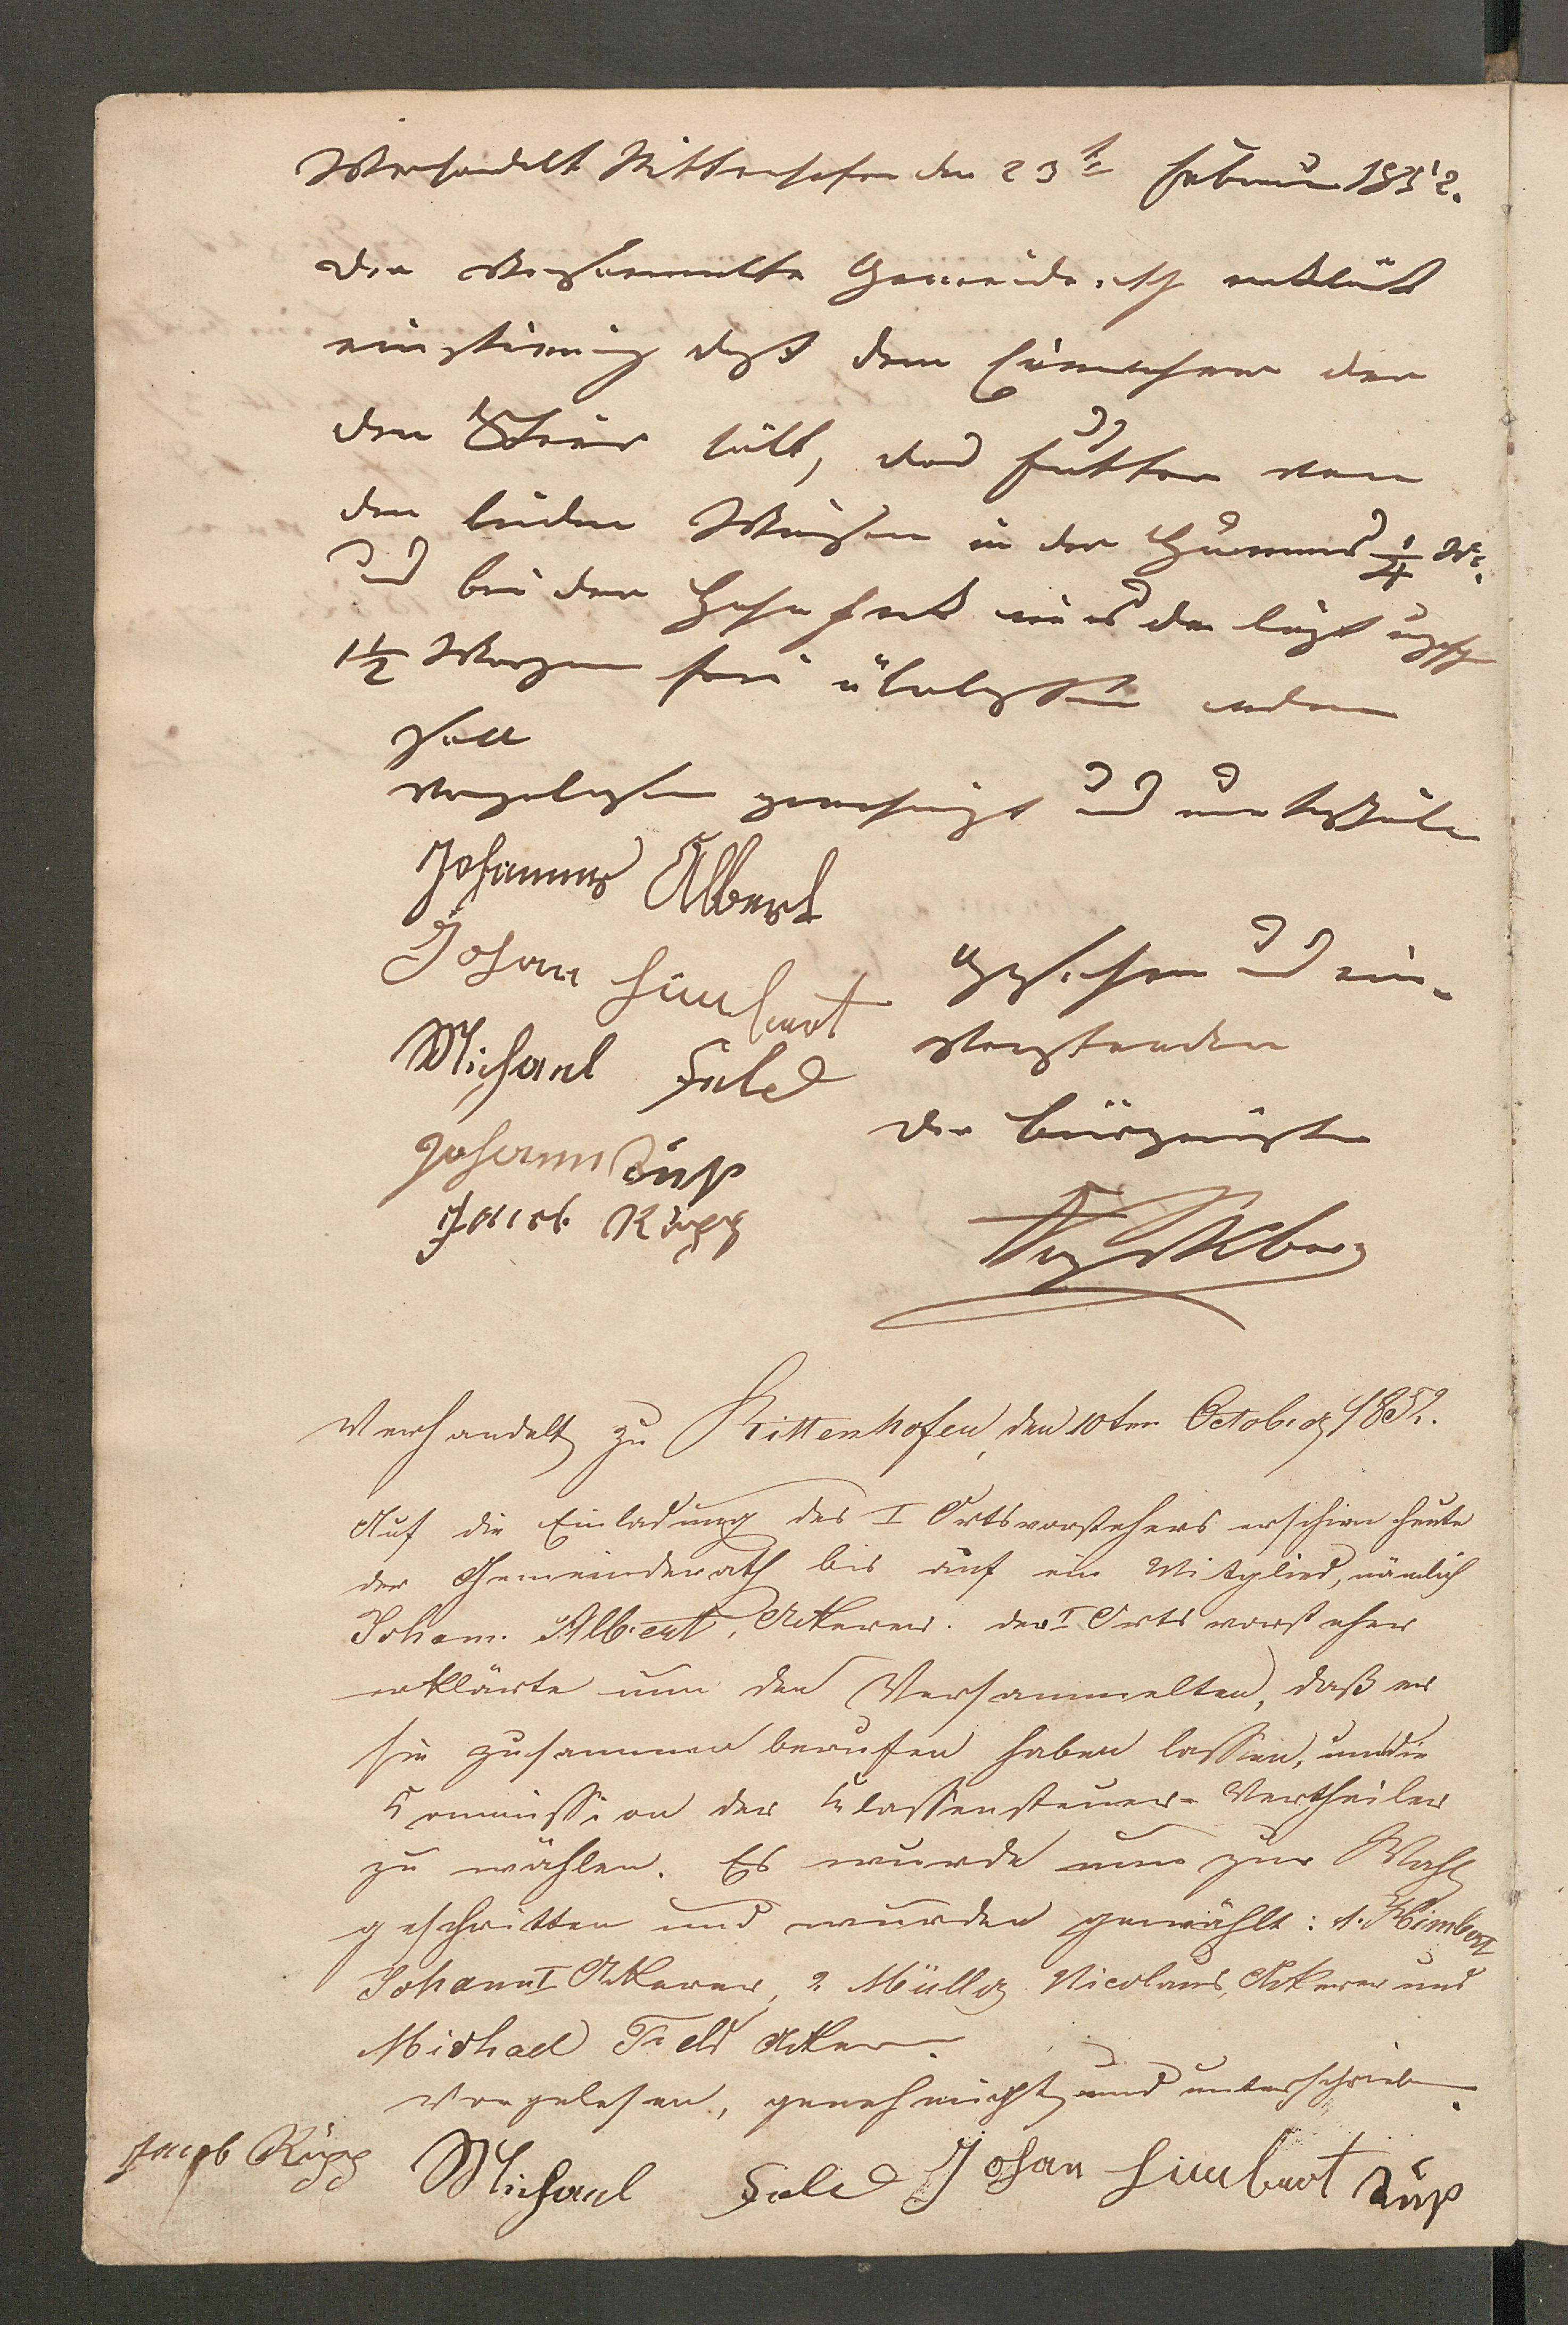 Verhandelt Rittenhofen den 23te Februar 1852.
Der versammelte Gemeinderath erklärt
einstimmig daß dem Einwohner der
den Stier hält, das Futter von
den beiden Wiesen in der Humes 1/4 M.
und bei der
1 1/2 Morgen überlassen werden
soll
vorgelesen genehmigt und unterschrieben
Johannes Albert
Johan Himbert
Michael Feld
Johann Züß
Jacob Rupp
Gesehen und ein-
verstanden
Der Bürgermeister
Verhandelt zu Rittenhofen, den 10ten October 1852.
Auf die Einladung des I Ortsvorstehers erschien heute
der Gemeinderath bis auf ein Mitglied, nämlich
Johann Albert, Ackerer. der I Ortsvorsteher
erklärte nun den Versammelten, daß er
sie zusammen berufen haben lassen, um die
Kommission der Klassensteuer-Vertheiler
zu wählen. Es wurde nun zur Wahl
geschritten und wurden gewählt: 1. Himbert
Johann I Ackerer, 2 Müller Nicolaus, Ackerer und
Michael Feld Ackerer.
Vorgelesen, genehmigt und unterschrieben.
Jacob Rupp Michael Feld Johan Himbert Züß